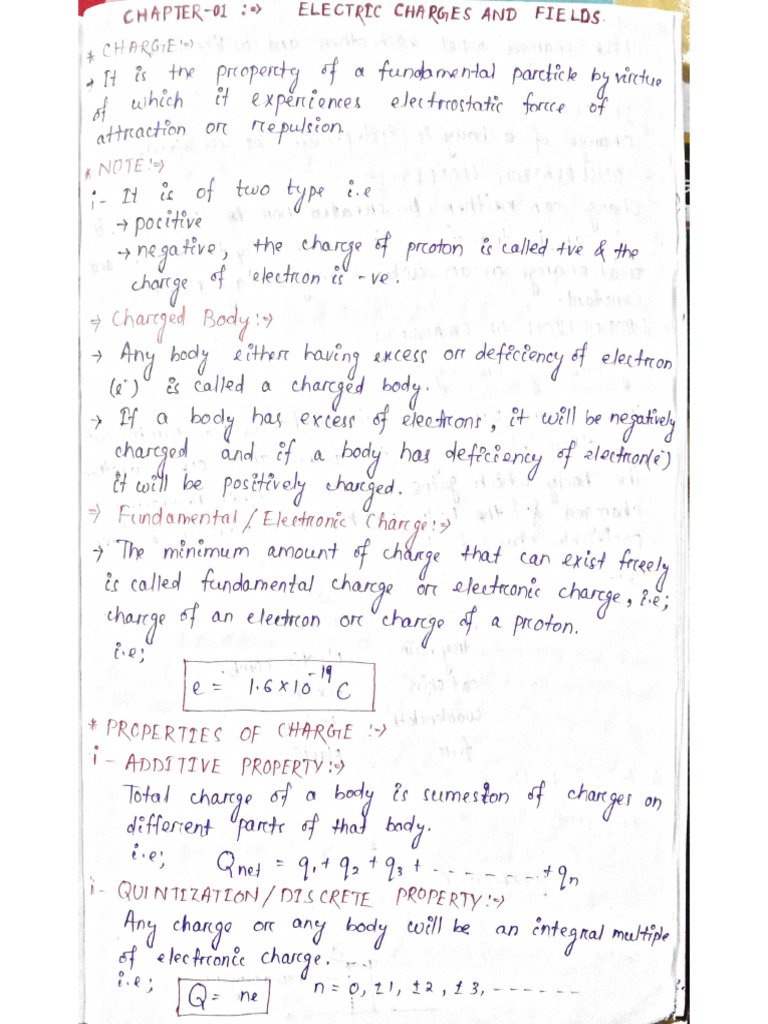 CHAPTER-01 :⇒ ELECTRIC CHARGES AND FIELDS.
* CHARGE:⇒
→ It is the property of a fundamental particle by virtue
of which it experiences electrostatic force of
attraction or repulsion.
* NOTE:⇒
i- It is of two type i.e
→ pocitive
→ negative, the charge of proton is called +ve & the
charge of electron is -ve.
⇒ Charged Body:⇒
→ Any body either having excess or deficiency of electron
(e⁻) is called a charged body.
→ If a body has excess of electrons, it will be negatively
charged and if a body has deficiency of electron(e⁻)
it will be positively charged.
⇒ Fundamental/Electronic Charge:⇒
→ The minimum amount of charge that can exist freely
is called fundamental charge or electronic charge, i.e;
charge of an electron or charge of a proton.
i.e;
e = 1.6×10⁻¹⁹ C
* PROPERTIES OF CHARGE :⇒
i - ADDITIVE PROPERTY:⇒
Total charge of a body is sumestion of charges on
different parts of that body.
i.e; Qnet = q₁+q₂+q₃+ - - - - - - - - +qn
i- QUINTIZATION/DISCRETE PROPERTY:⇒
Any charge or any body will be an integral multiple
of electronic charge.
i.e; Q= ne n=0, ±1, ±2, ±3, - - - - - -